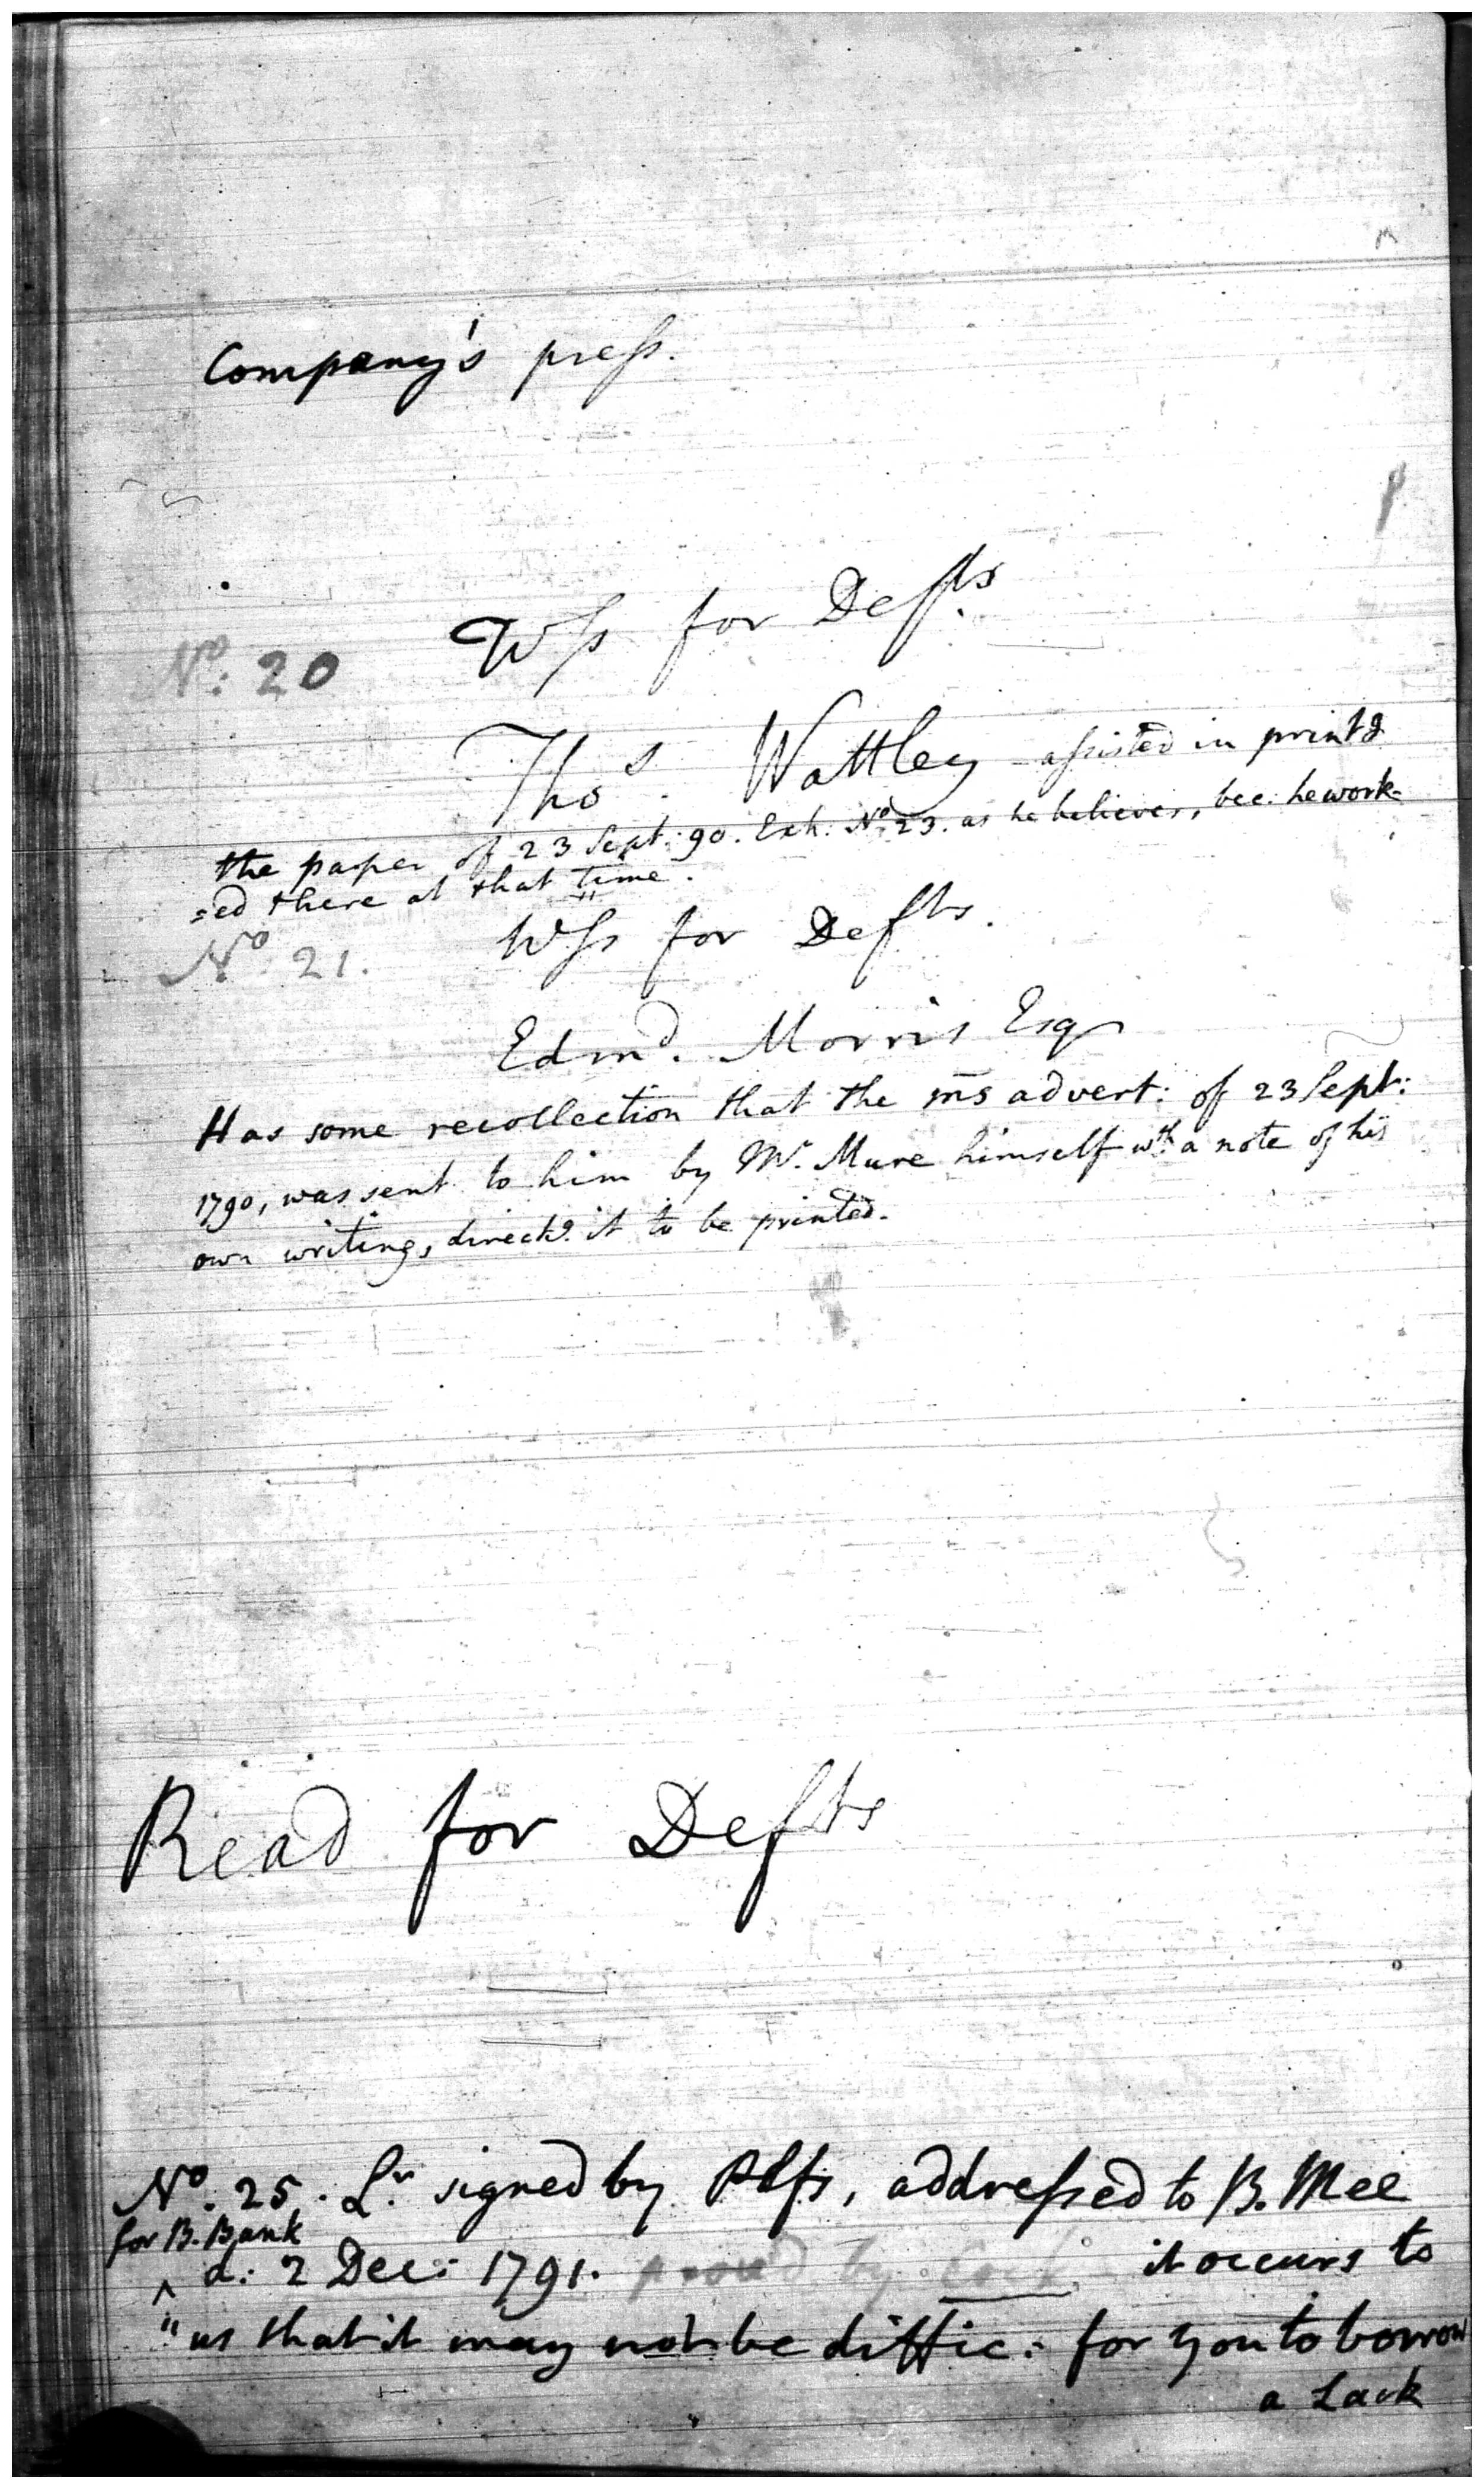 Company's press.
Wss for Defts.
No. 20
Thos. Wattley assisted in printg
the paper of 23 Sept: 90. Exh: No. 23. as he believes, bec: he work-
=ed there at that time.
No. 21. Wss for Defts.
Edmd. Morris Esqr
Has some recollection that the ms advert: of 23 Sept:
1790, was sent to him by Mr. Mure himself wth. a note of his
own writing, directg. it to be printed.
Read for Defts
No. 25. Lr. signed by Plfs, addressed to B. Mee
for B. Bank
^ d: 2 Dec: 1791. proved by Cock it occurs to
"us that it may not be diffic: for you to borrow
a Lack